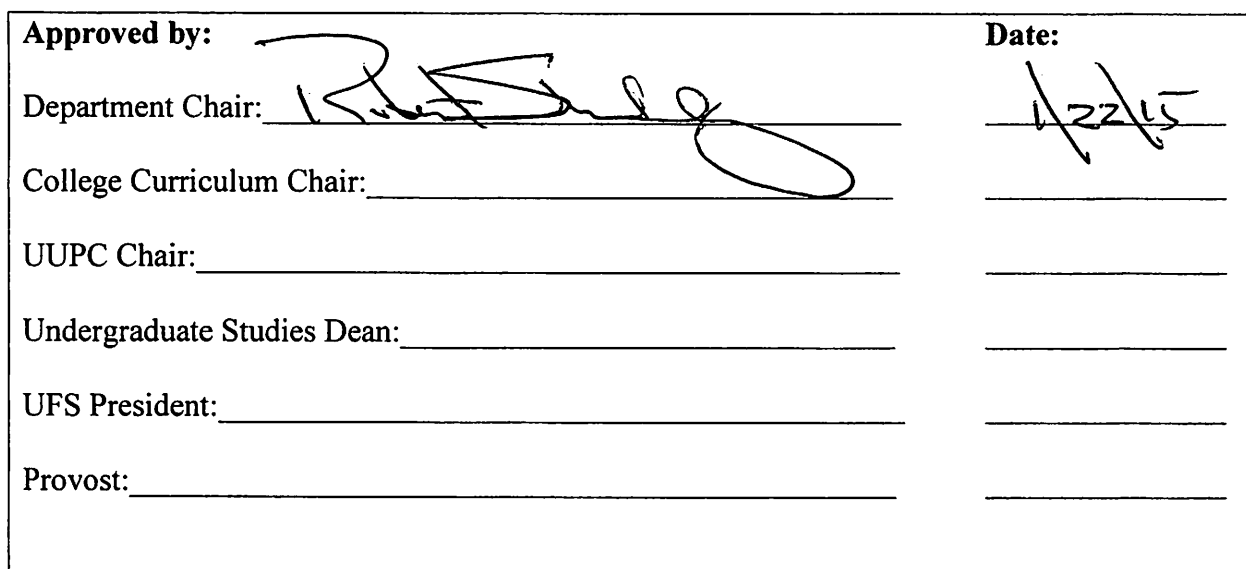 Approved by: Date:
Department Chair: 1/22/15
College Curriculum Chair:
UUPC Chair:
Undergraduate Studies Dean:
UFS President:
Provost: